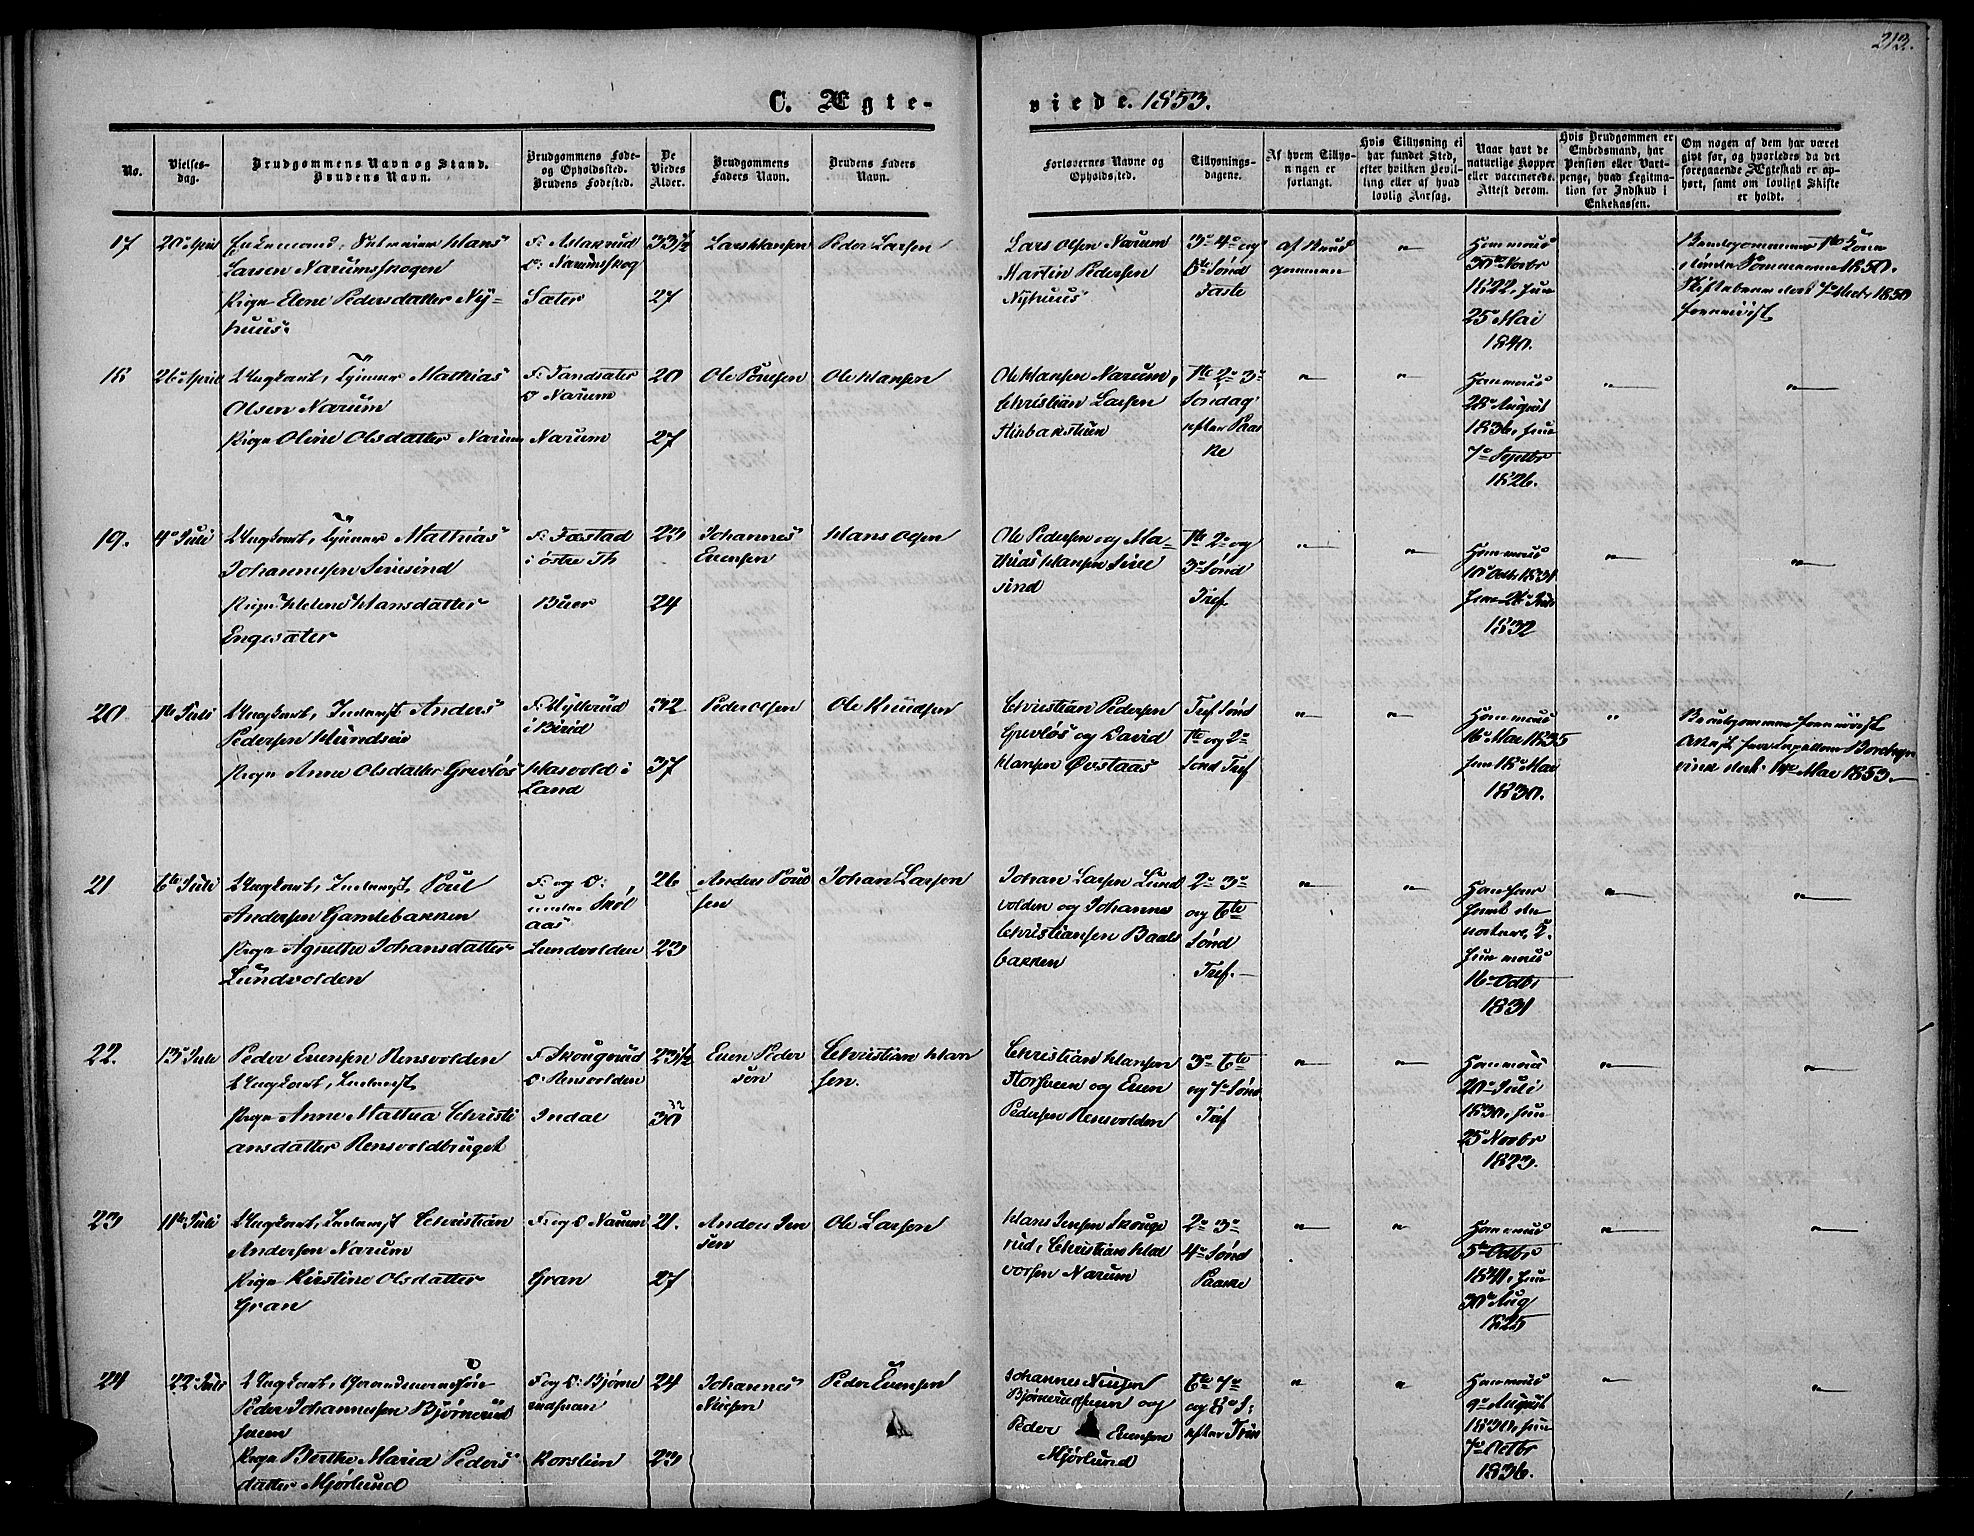 213.
C. Ægte-
viede. 1853.
No.
Vielses-
dag.
Brudgommens Navn og Stand.
Brudens Navn.
Brudgommens Føde-
og Opholdssted.
Brudens Fødested.
De
Viedes
Alder.
Brudgommens
Faders Navn.
Brudens Faders
Navn.
Forlovernes Navne og
Opholdssted.
Tillysnings-
dagene.
Af hvem Tillys-
ningen er
forlangt.
Hvis Tillysning ei
har fundet Sted,
efter hvilken Bevil-
ling eller af hvad
lovlig Aarsag.
Naar havt de
naturlige Kopper
eller vaccinerede.
Attest derom.
Hvis Brudgommen er
Embedsmand, har
Pension eller Vart-
penge, hvad Legitima-
tion for Indskud i
Enkekassen.
Om nogen af dem har været
gift før, og hvorledes da det
foregaaende Ægteskab er op-
hørt, samt om lovligt Skifte
er holdt.
17
20 April
Enkemand, Hans
Larsen Narumskogen
Pige Elene Pedersdatter Ny-
huus.
O: Narumskog
Sæter
33½
27
Lars Hansen
Peder Larsen
Lars Olsen Narum
Martin Pedersen
Nyhuus
3. 4. og
Sønd
Faste
af Brud
gommen
30 Novbr
1822, hun
25 Mai
1840.
18
26 April
Ungkarl, Mathias
Olsen Narum
Pige Oline Olsdatter Narum
O Narum
Narum
20
27
Ole Poulsen
Ole Hansen
Ole Hansen Narum,
Christian Larsen
1te 2. 3.
Søndag
efter Paas
ke
28 August
1836, hun
7 Septbr
1826.
19.
4 Juli
Ungkarl, Mathias
Johannessen Sivesind
Pige Helene Hansdatter
Engesæter
F: Fæstad
i østre Th
Buer
23
24
Johannes
Evensen
Hans Olsen
Ole Pedersen og Ma-
thias Hansen Sive
sind
1te 2. og
3. Sønd
Tref.
1832
20
1te Juli
Ungkarl, Inderst Anders
Pedersen Hundseie
Pige Anne Olsdatter Grevløs
i Birid
Hasvold i
Land
32
37
Peder Olsen
Ole Knudsen
Christian Pedersen
Grevløs og David
Hansen Øvstaas
Tref. Sønd
1te og 2.
Sønd Tref
16 Mai 1835
hun 18 Mai
1830.
21
6te Juli
Ungkarl, Inderst, Poul
Andersen Gamlebakken
Pige Agnethe Johansdatter
Lundvolden
F: og O:
under Skøl
aas
Lundvolden
26
23
Anders Poul
sen
Johan Larsen
Johan Larsen Lund
volden og Johannes
Christiansen Baals
bakken
2. 3.
og 6te
Sønd
Tref.
16 Octbr
1831
22.
13 Juli
Peder Evensen Rensvolden
Ungkarl, Inderst
Pige Anne Mathea Christi
ansdatter Rensvoldbruget
F. Skougrud
O. Rensvolden
Indal
23½
30
Even Peder
sen
Christian Han
sen.
Christian Hansen
Storsveen og Even
Pedersen Rensvolden
3. 6te
og 7. Sønd
Tref
20 Juli
1830, hun
25 Novbr
1823.
23
11te Juli
Ungkarl, Inderst Christian
Andersen Narum
Pige Kirstine Olsdatter
Gran
F. og O Narum
Gran
21.
27
Anders Jen
sen
Ole Larsen
Hans Jensen Skouge
rud, Christian Hal
vorsen Narum
2. 3.
4. Sønd
Paaske
5te Octbr
1841, hun
30 Aug
1825
24
22 Juli
Ungkarl, Gaardmandssøn
Peder Johannessen Bjørnerud
sveen
Pige Berthe Maria Peders
datter Mjørlund
F og O: Bjørne
rudsveen
Korslien
24
23
Johannes
Nielsen
Peder Evensen
Johannes Nielsen
Bjørnerudsveen og
Peder Evensen
Mjørlund
6te 7.
og 8. S:
efter Trin
9. August
1830, hun
7. Octbr
1836.